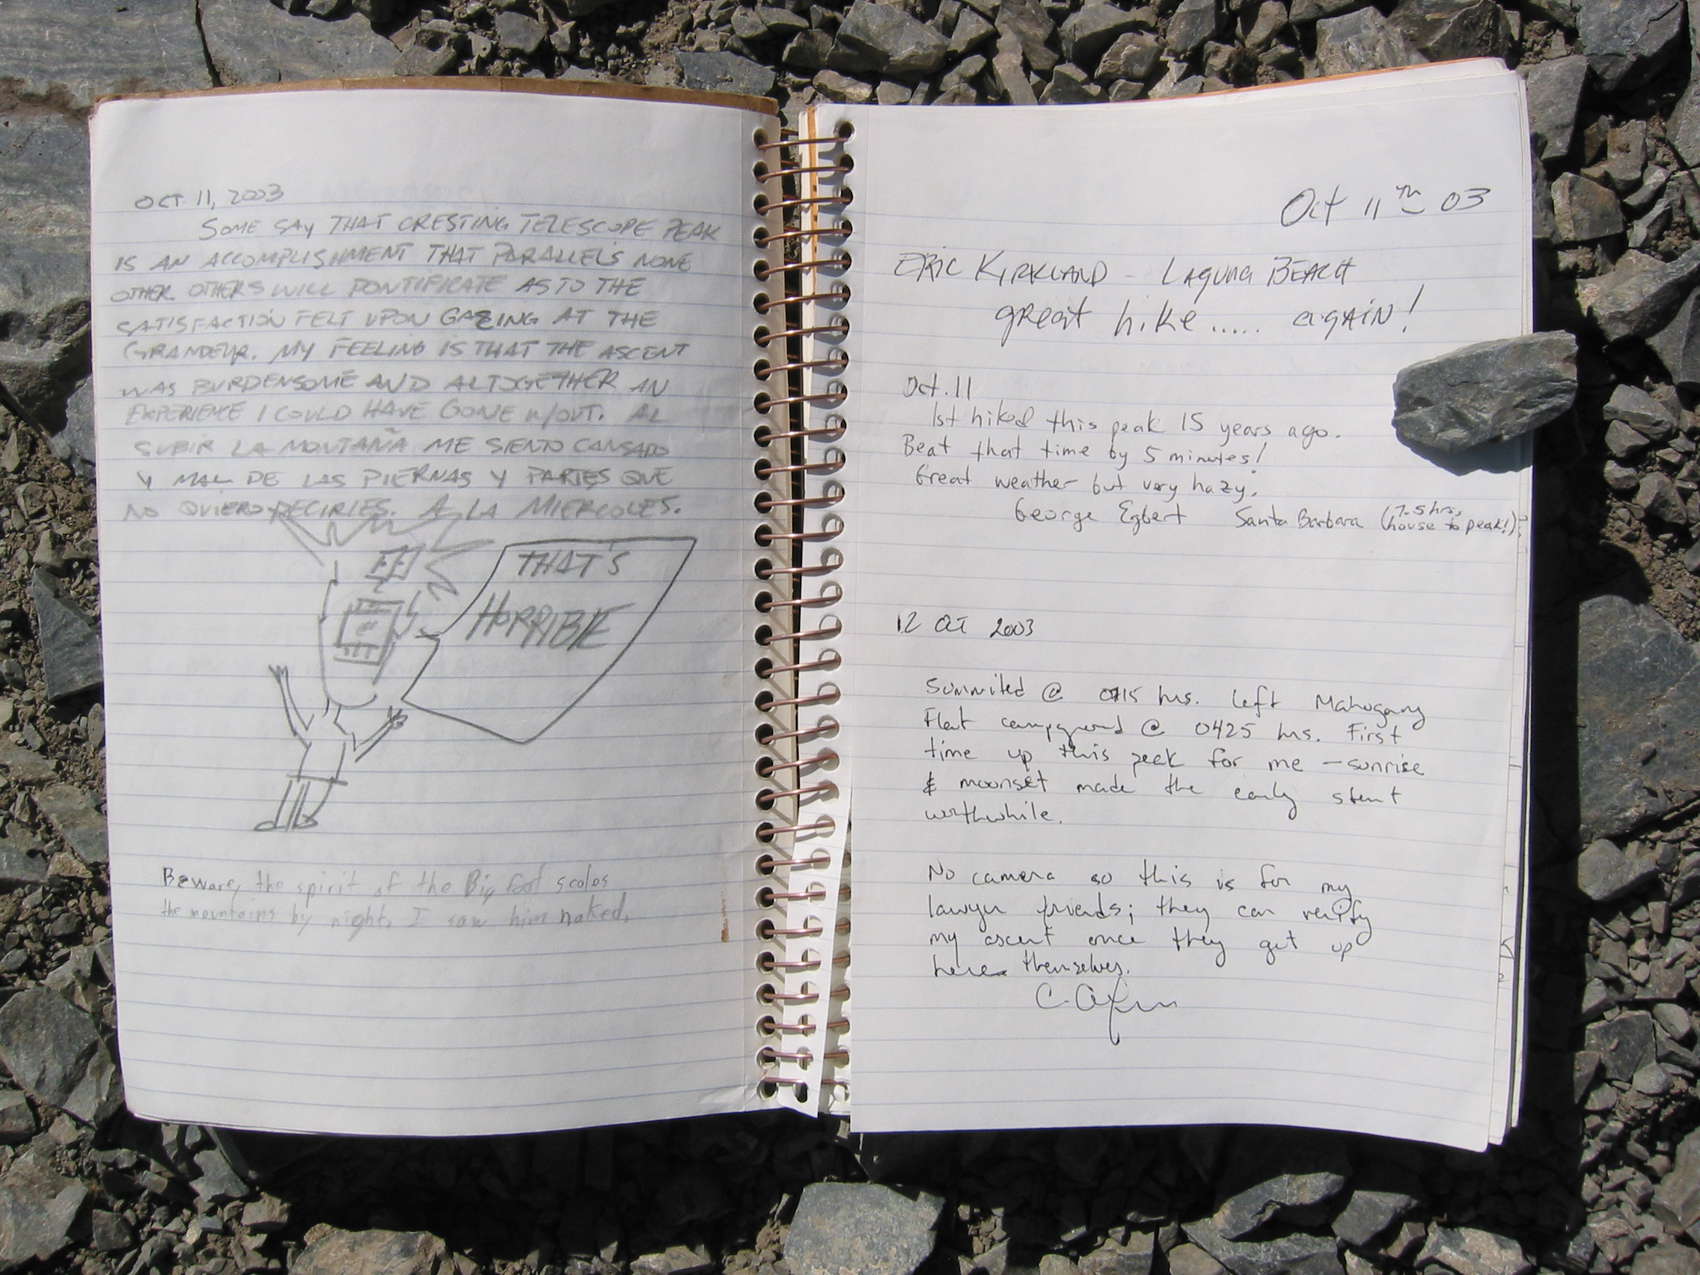 OCT 11, 2003
SOME SAY THAT CRESTING TELESCOPE PEAK
IS AN ACCOMPLISHMENT THAT PARALLELS NONE
OTHER. OTHERS WILL PONTIFICATE AS TO THE
SATISFACTION FELT UPON GAZING AT THE
GRANDEUR. MY FEELING IS THAT THE ASCENT
WAS BURDENSOME AND ALTOGETHER AN
EXPERIENCE I COULD HAVE GONE W/OUT. AL
SUBIR LA MONTAÑA ME SIENTO CANSADO
Y MAL DE LAS PIERNAS Y PARTES QUE
NO QUIERO DECIRLES. A LA MIERCOLES.
THAT'S
HORRIBLE
Beware, the spirit of the Big foot scales
the mountains by night. I saw him naked.
Oct 11TH 03
ERIC KIRKLAND - LAGUNA BEACH
great hike..... agAiN!
Oct. 11
1st hiked this peak 15 years ago.
Beat that time by 5 minutes!
Great weather but very hazy.
George Egbert Santa Barbara (7.5 hrs,
house to peak!)
12 Oct 2003
Summited @ 0715 hrs. Left Mahogany
Flat campground @ 0425 hrs. First
time up this peak for me - sunrise
& moonset made the early start
worthwhile.
No camera so this is for my
lawyer friends; they can verify
my ascent once they get up
here themselves.